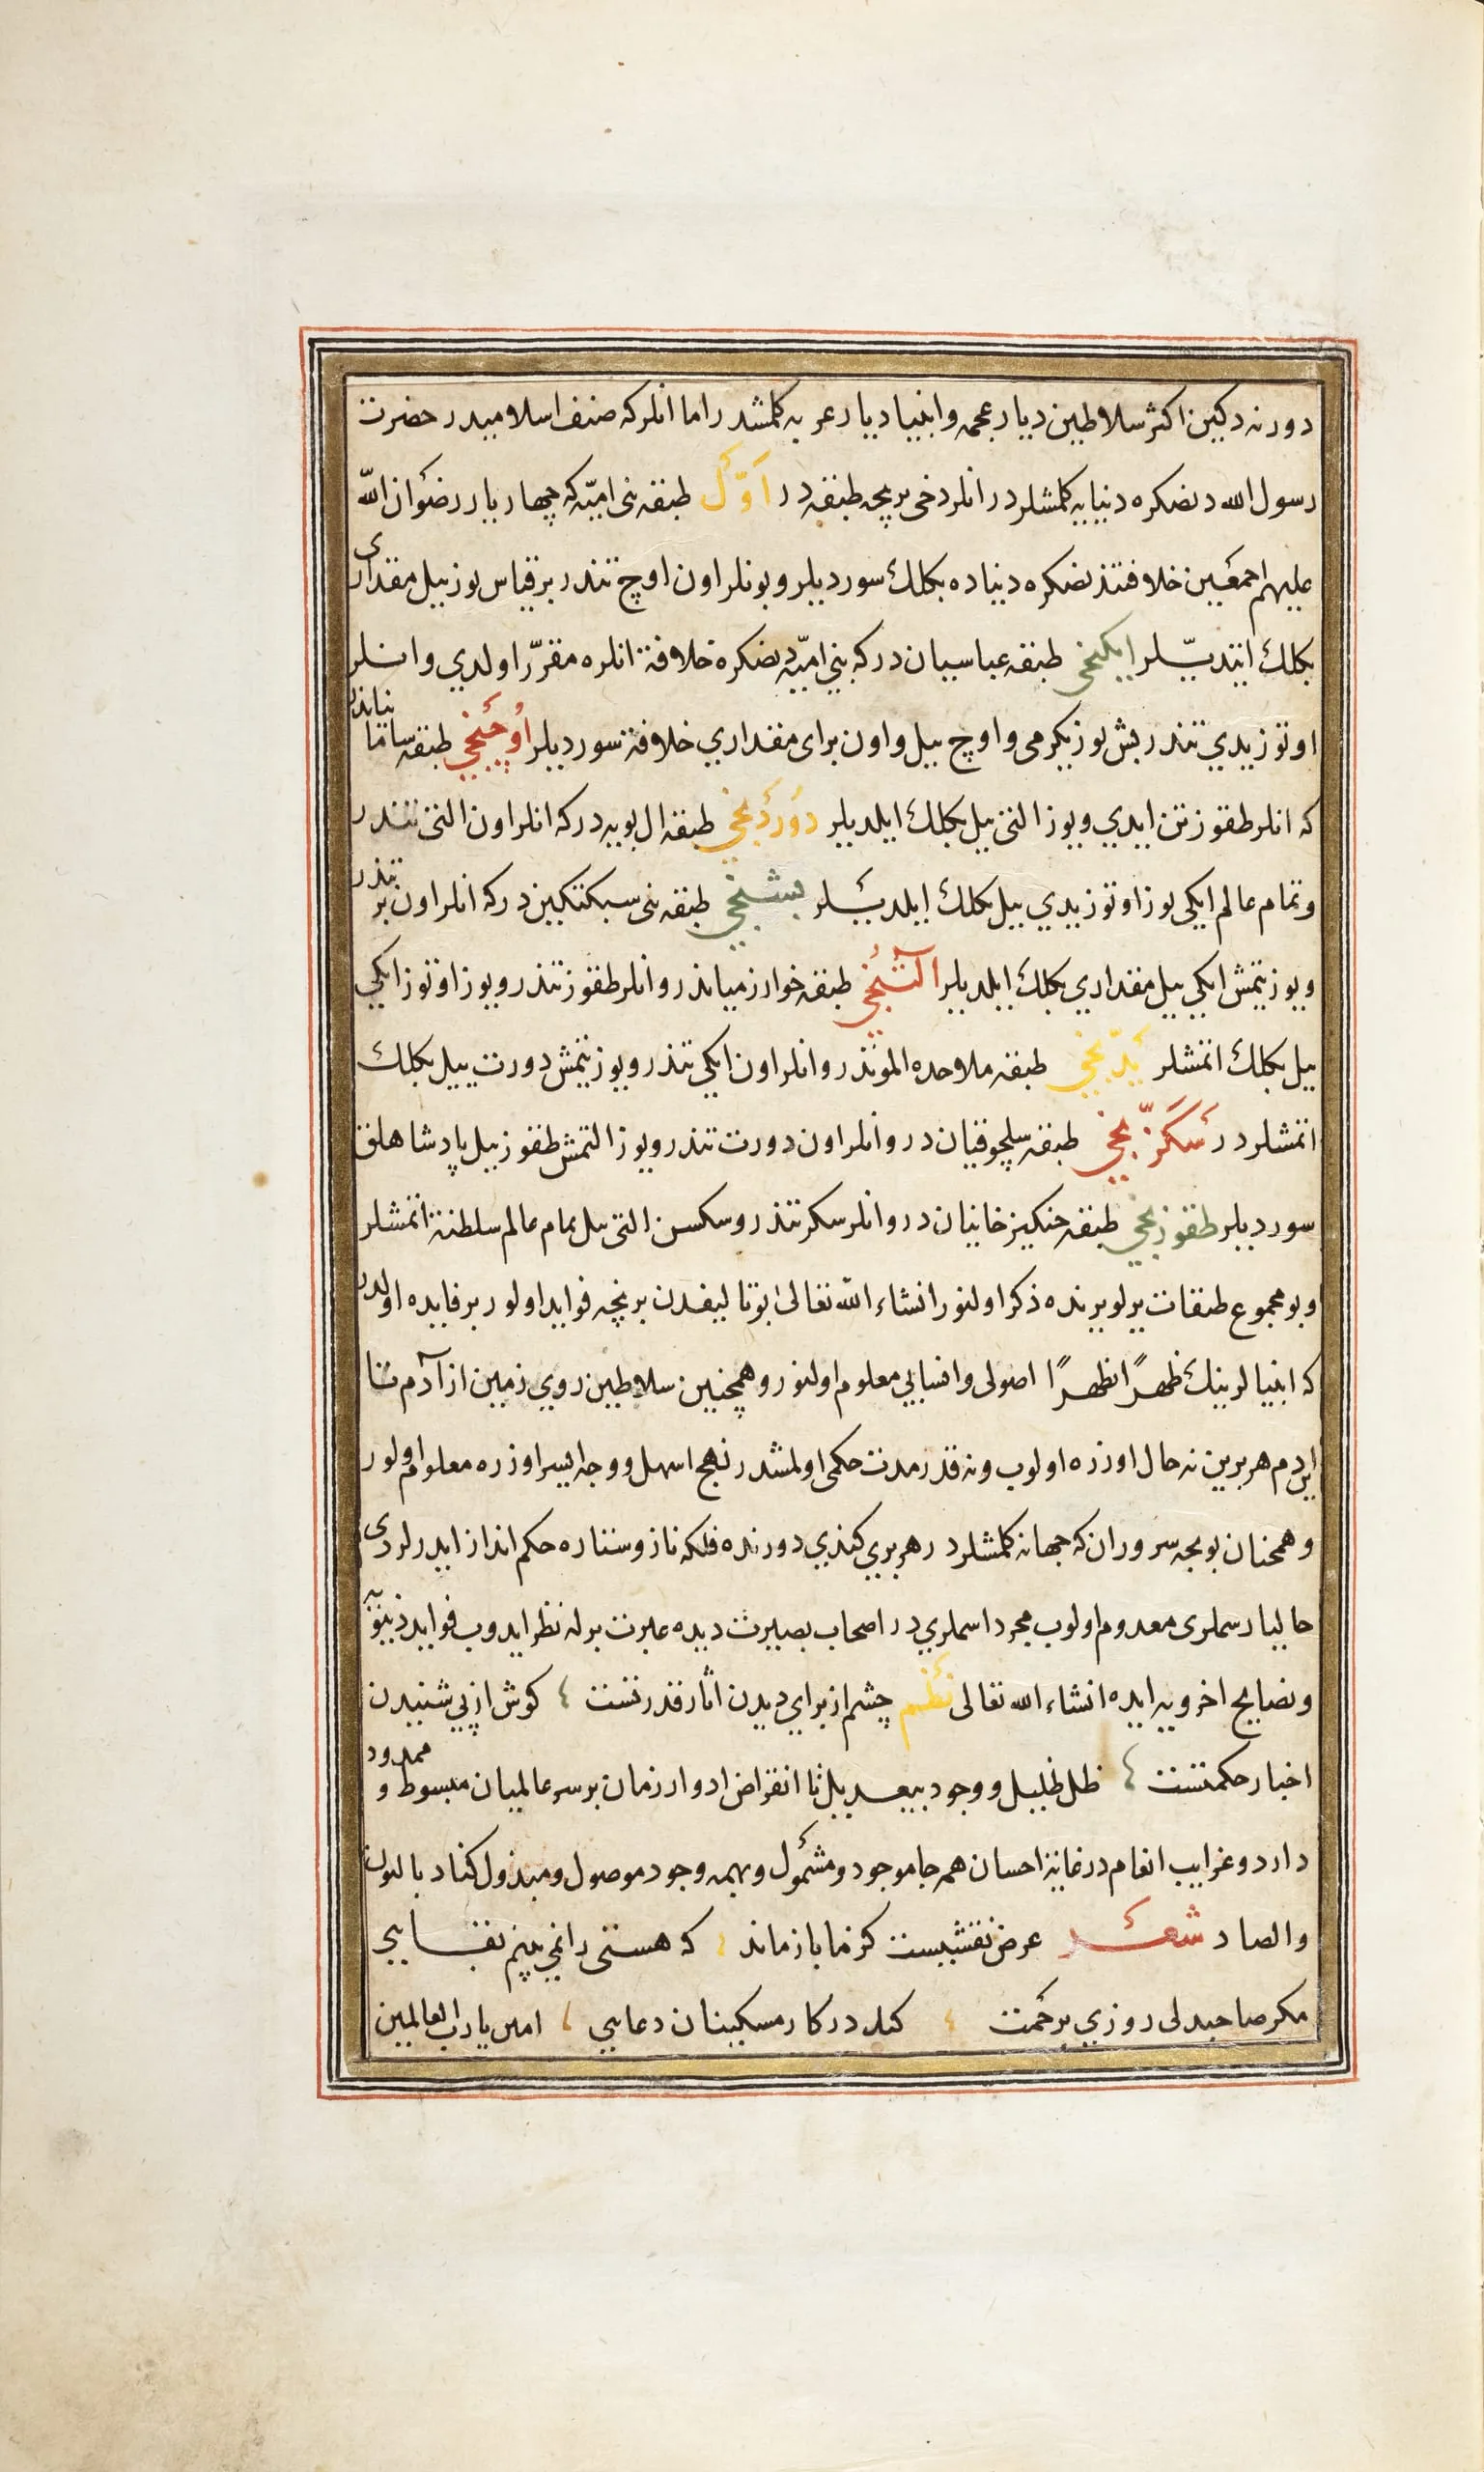 دورنه دكین اكثر سلاطین دیار عجمه وانبیا دیار عربه كلمشدر اما انلر كه صنف اسلامیدر حضرت
رسول الله دنصكره دنیایه كلمشلردر انلر دخی برنچه طبقه در اَوَّل طبقه بنی امیّه كه چهار یار رضوان الله
علیهم اجمعین خلافتندنصكره دنیاده بكلك سوردیلر وبونلر اون اوچ تندر بر قیاس یوز ییل مقداری
بكلك ایتدیلر ایكنجی طبقه عباسیان در كه بنی امیّه دنصكره خلافة انلره مقرّر اولدی وانلر
اوتوز یدی تندر بش یوز یكرمی واوچ ییل واون برای مقداری خلافة سوردیلر اُوچُنجی طبقه سامانیاندر
كه انلر طقوز تن ایدی ویوز التی ییل بكلك ایلدیلر دُوردُنجی طبقه ال بویه در كه انلر اون التی تندر
وتمام عالم ایكی یوز اوتوز یدی ییل بكلك ایلدیلر بشنجی طبقه بنی سبكتكین در كه انلر اون بر تندر
ویوز یتمش ایكی ییل مقداری بكلك ایلدیلر آلتنجی طبقه خوارزمیاندر وانلر طقوز تندر ویوز اوتوز ایكی
ییل بكلك اتمشلر یدّنجی طبقه ملاحده الموتدر وانلر اون ایكی تندر ویوز یتمش دورت ییل بكلك
اتمشلردر سَكَزّنجی طبقه سلچوقیان در وانلر اون دورت تندر ویوز التمش طقوز ییل پادشاهلق
سوردیلر طقوزنجی طبقه جنكیز خانیان در وانلر سكز تندر وسكسن التی ییل تمام عالم سلطنة اتمشلر
وبو مجموع طبقات یرلو یرنده ذكر اولنور انشاء الله تعالی ابو تالیفدن برنچه فواید اولور بر فایده اولدر
كه انبیالرینك ظهرًا نظهرًا اصولی وانسابی معلوم اولنور وهمچنین سلاطین روی زمین از آدم تا
این دم هر برین نه حال اوزره اولوب ونه قدر مدت حكمی اولمشدر نهج اسهل ووجه ایسر اوزره معلوم اولور
وهمچنان بونجه سروران كه جهانه كلمشلردر هر بری كندی دورنده فلكه ناز وستاره حكم انداز ایدرلردی
حالیا رسملری معدوم اولوب مجرد اسملری در اصحاب بصیرت دیده عبرت برله نظر ایدوب فواید دنیویه
ونصایح اخرویه ایده انشاء الله تعالی نظم چشم از برای دیدن اثار قدرتست كوش از پی شنیدن
اخبار حكمتست ظل ظلیل ووجود بیعدیل تا انقراض ادوار زمان بر سر عالمیان مبسوط و ممدود
دارد وغرایب انعام در غایة احسان همه جا موجود ومشمول وبهمه وجود موصول ومبذول كناد بالنون
والصاد شعر عرض نقشیست كز ما باز ماند كه هستی را نمی بینم بقایی
مكر صاحبدلی روزی برحمت كند در كار مسكینان دعایی امین یا رب العالمین